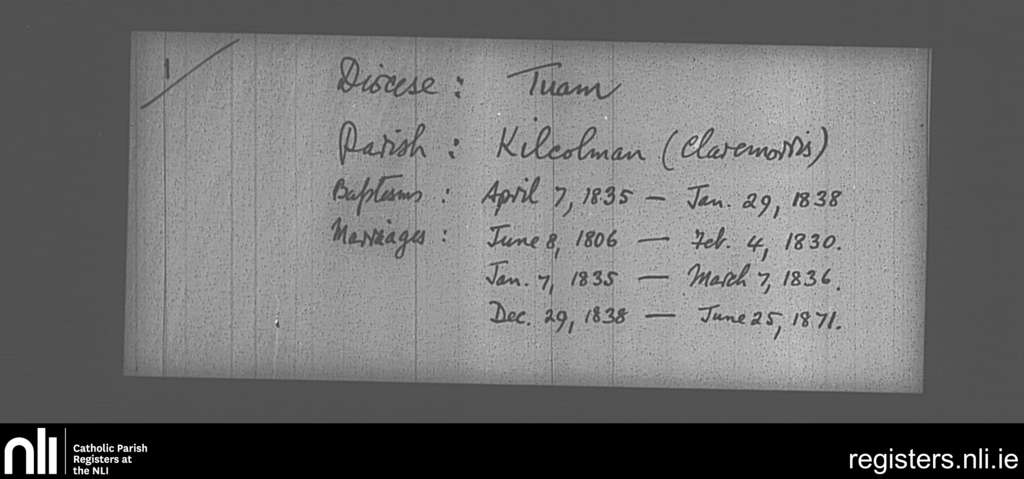 1/
Diocese : Tuam
Parish : Kilcolman (Claremorris)
Baptisms : April 7, 1835 — Jan. 29, 1838
Marriages : June 8, 1806 — Feb. 4, 1830.
Jan. 7, 1835 — March 7, 1836.
Dec. 29, 1838 — June 25, 1871.
nli
Catholic Parish
Registers at
the NLI
registers.nli.ie